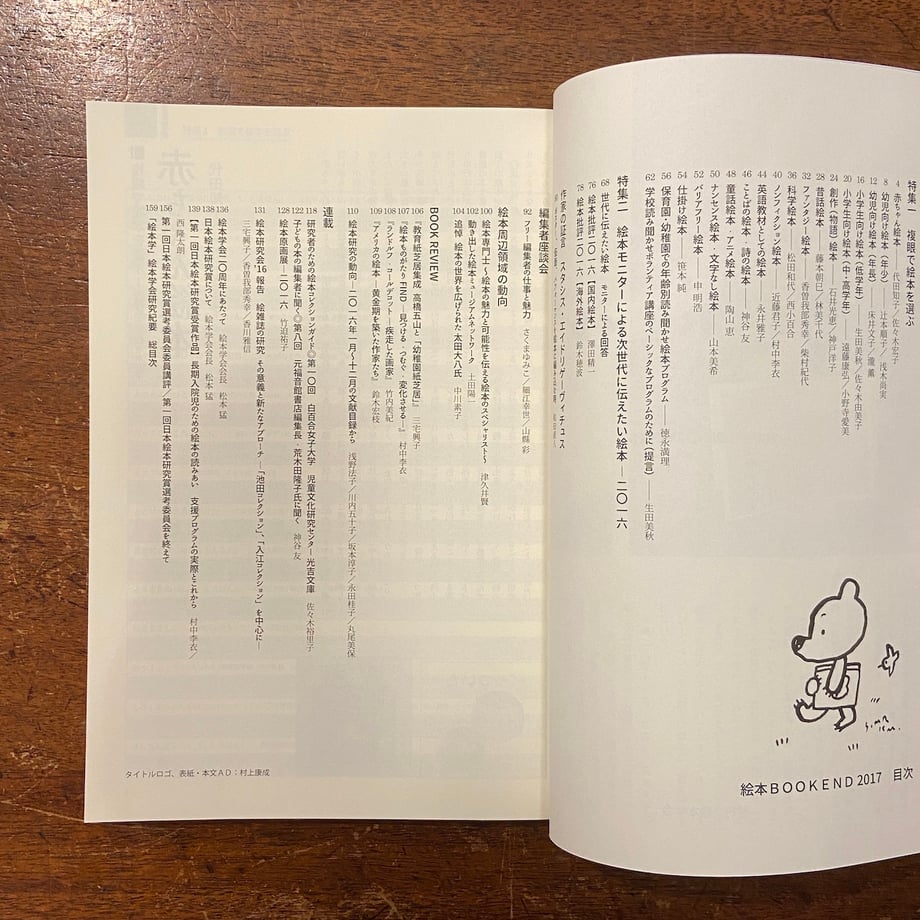 特集一 複眼で絵本を選ぶ
4 赤ちゃん絵本 ── 代田知子／佐々木宏子
8 幼児向け絵本（年少） ── 辻本順子／浅木尚実
12 幼児向け絵本（年長） ── 床井文子／瀧 薫
16 小学生向け絵本（低学年） ── 生田美秋／佐々木由美子
20 小学生向け絵本（中・高学年） ── 遠藤康弘／小野寺愛美
24 創作（物語）絵本 ── 石井光恵／神戸洋子
28 昔話絵本 ── 藤本朝巳／林美千代
32 ファンタジー絵本 ── 香曽我部秀幸／柴村紀代
36 科学絵本 ── 松田和代／西小百合
40 ノンフィクション絵本 ── 近藤君子／村中李衣
44 英語教材としての絵本 ── 永井雅子
46 ことばの絵本・詩の絵本 ── 神谷友
48 童話絵本・アニメ絵本 ── 陶山恵
50 ナンセンス絵本・文字なし絵本 ── 山本美希
52 バリアフリー絵本 ── 申明浩
54 仕掛け絵本 ── 笹本純
56 保育園・幼稚園での年齢別読み聞かせ絵本プログラム ── 徳永満理
62 学校読み聞かせボランティア講座のベーシックなプログラムのために（提言） ── 生田美秋
特集二 絵本モニターによる次世代に伝えたい絵本 ─ 二〇一六
68 世代に伝えたい絵本 モニターによる回答
76 絵本批評二〇一六【国内絵本】 澤田精一
78 絵本批評二〇一六【海外絵本】 鈴木穂波
作家の証言 スタシス・エイドリゲーヴィチュス
編集者座談会
92 フリー編集者の仕事と魅力 さくまゆみこ／細江幸世／山縣彩
絵本周辺領域の動向
100 絵本専門士～絵本の魅力と可能性を伝える絵本のスペシャリスト～ 津久井賢
102 動き出した絵本ミュージアムネットワーク 土田陽一
104 追悼 絵本の世界を広げられた太田大八氏 中川素子
BOOK REVIEW
106 『教育紙芝居集成 高橋五山と「幼稚園紙芝居」』 三宅興子
107 『絵本ものがたりFIND ─見つける・つむぐ・変化させる─』 村中李衣
108 『ランドルフ・コールデコット─疾走した画家』 竹内美紀
109 『アメリカの絵本─黄金期を築いた作家たち』 鈴木宏枝
110 絵本研究の動向─二〇一六年一月～十二月の文献目録から 浅野法子／川内五十子／坂本淳子／永田桂子／丸尾美保
連載
118 研究者のための絵本コレクションガイド◎第一〇回 白百合女子大学 児童文化研究センター 光吉文庫 佐々木裕里子
122 子どもの本の編集者に聞く◎第八回 元福音館書店編集長・荒木田隆子氏に聞く 神谷友
128 絵本原画展─二〇一六 竹迫祐子
131 絵本研究会'16報告 絵雑誌の研究 その意義と新たなアプローチ─「池田コレクション」、「入江コレクション」を中心に─
三宅興子／香曽我部秀幸／香川雅信
136 絵本学会二〇周年にあたって 絵本学会会長 松本猛
138 日本絵本研究賞について 絵本学会会長 松本猛
139 【第一回日本絵本研究賞受賞作品】長期入院児のための絵本の読みあい 支援プログラムの実際とこれから 村中李衣／
西隆太朗
156 第一回日本絵本研究賞選考委員会委員講評／第一回日本絵本研究賞選考委員会を終えて
159 「絵本学」絵本学会研究紀要 総目次
タイトルロゴ、表紙・本文AD：村上康成
絵本BOOKEND 2017 目次